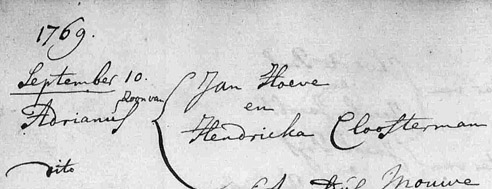 1769.
September 10.
Adrianus Zoon van
Jan Hoeve
en
Hendricka Cloosterman
dito
Mouwe